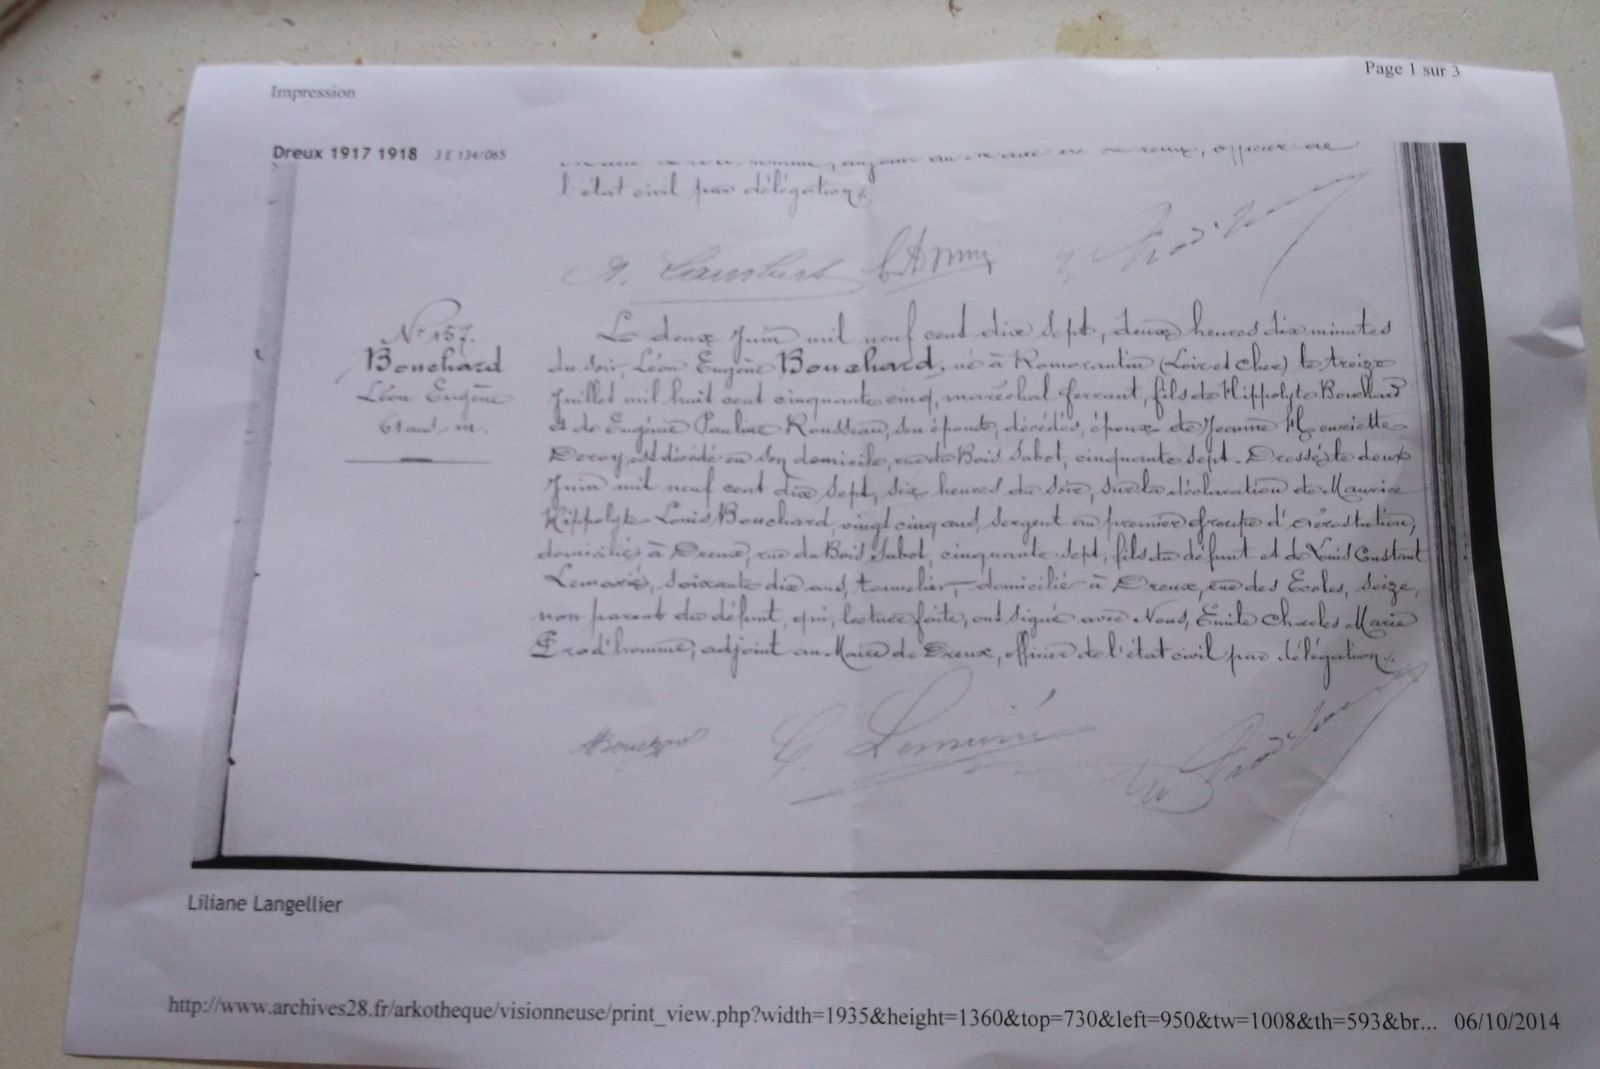 Page 1 sur 3
Impression
Dreux 1917 1918 3 E 134/065
officier de
l'état civil par délégation.
Lambert
N° 157.
Bouchard
Léon Eugène
61 ans, m.
Le deux Juin mil neuf cent dix sept, deux heures dix minutes
du soir, Léon Eugène Bouchard, né à Romorantin (Loir et Cher) le treize
Juillet mil huit cent cinquante cinq, maréchal ferrant, fils de Hippolyte Bouchard
et de Eugénie Pauline Rousseau, son épouse, décédés, époux de Jeanne Henriette
Deroy, est décédé en son domicile, rue du Bois Sabot, cinquante sept. Dressé le deux
Juin mil neuf cent dix sept, six heures du soir, sur la déclaration de Maurice
Hippolyte Louis Bouchard, vingt cinq ans, sergent au premier groupe d'aérostation,
domicilié à Dreux, rue du Bois Sabot, cinquante sept, fils du défunt et de Louis Constant
Lemarié, soixante dix ans, tonnelier, domicilié à Dreux, rue des Ecoles, seize,
non parent du défunt, qui, lecture faite, ont signé avec Nous, Emile Charles Marie
Prod'homme, adjoint au Maire de Dreux, officier de l'état civil par délégation.
Bouchard C. Lemarié
Liliane Langellier
http://www.archives28.fr/arkotheque/visionneuse/print_view.php?width=1935&height=1360&top=730&left=950&tw=1008&th=593&br... 06/10/2014